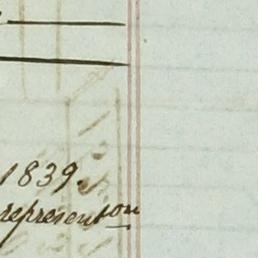 1839.
represent on